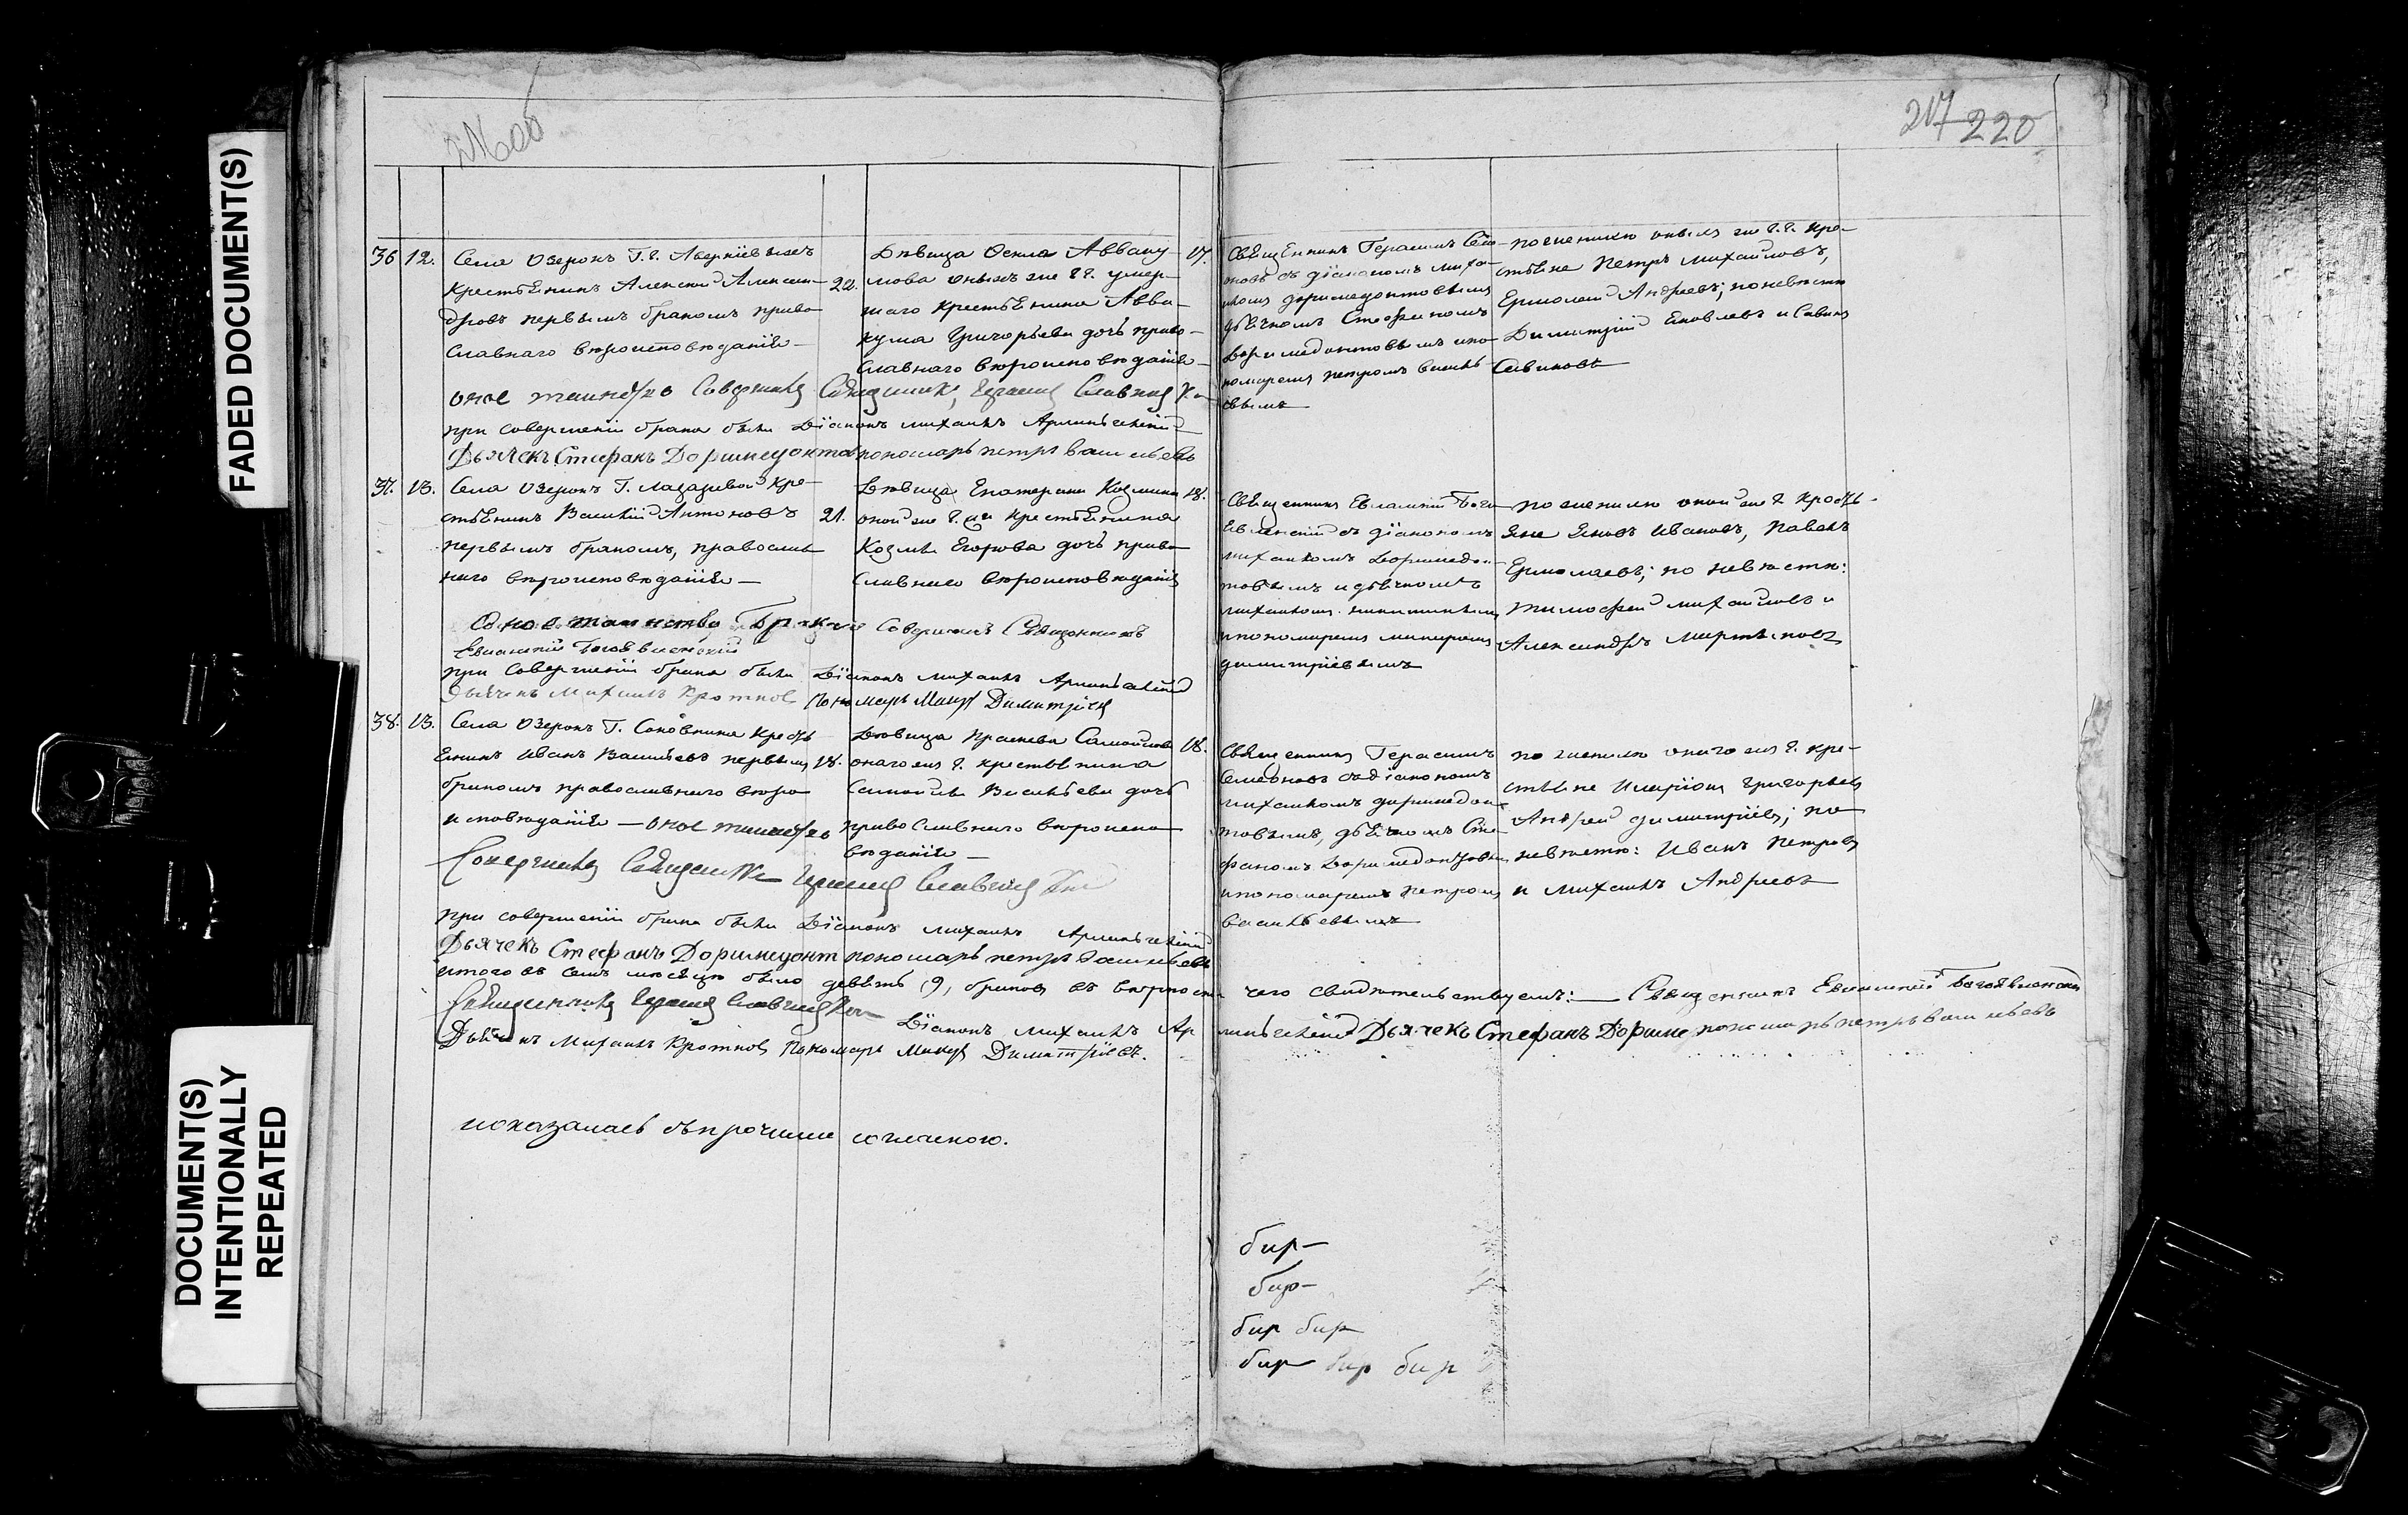 FADED DOCUMENT(S)
DOCUMENT(S)
INTENTIONALLY
REPEATED
217 220
36 12. Села Озерокъ Г. г. Аверкіевыхъ
крестьянинъ Алексѣй Алексан-
дровъ первымъ бракомъ право
славнаго вѣроисповѣданія
22.
Дѣвица Ѳекла Аввaку-
мова оныхъ же г г. умер-
шаго крестьянина Авва-
кума Григорьева дочь право-
славнаго вѣроисповѣданія
17.
Священникъ Герасимъ Семе-
оновъ съ діакономъ миха-
иломъ доримедонтовымъ
дьячкомъ Стефаномъ
Доримедонтовымъ и по-
номаремъ петромъ василь-
евымъ
по женихѣ оныхъ же г. г. кре-
стьяне Петръ Михайловъ,
Ермолай Андреевъ; по невѣстѣ
Димитрій Яковлевъ и Савинъ
Савиновъ
оное таинство совершилъ Священникъ Герасимъ
при совершеніи брака были Діаконъ михаилъ
Дьячекъ Стефанъ Доримедонтов пономарь петръ васильевъ
37. 13. Села Озерокъ Г. Лазаревой кре-
стьянинъ Василій Антоновъ
первымъ бракомъ, православ
наго вѣроисповѣданія
21.
Дѣвица Екатерина Козмина
оной же г. крестьянина
Козмы Егорова дочь право
славнаго вѣроисповѣданія
18.
Священникъ Евлампій Бого
явленскій съ діакономъ
михаиломъ Доримедон
товымъ и дьячкомъ
михаиломъ никитинымъ
и пономаремъ макаромъ
димитріевымъ
по женихѣ оной же г. кресть-
яне Яковъ Ивановъ, Павелъ
Ермолаевъ; по невѣстѣ:
Тимофей михайловъ и
Александръ Мартыновъ
оное таинство Брака Совершилъ Священникъ
Евлампій Богоявленскій
при совершеніи брака были Діаконъ михаилъ
Дьячекъ Михаилъ Кротков Пономарь Макар Димитріев
38. 13. Села Озерокъ Г. Соковнина кресть
янинъ Иванъ Васильевъ первымъ
бракомъ православнаго вѣро
исповѣданія — оное таинство
18.
Дѣвица Прасковья Самойлова
онаго же г. крестьянина
Самойлы Васильева дочь
православнаго вѣроиспо
вѣданія
18.
Священникъ Герасимъ
Семеоновъ съ діакономъ
михаиломъ доримедон
товымъ, дьячкомъ Сте
фаномъ Доримедонтовым
и пономаремъ петромъ
васильевымъ
по женихѣ онаго же г. кре-
стьяне Иларіонъ Григорьевъ
Андрей димитріевъ; по
невѣстѣ: Иванъ Петровъ
и Михаилъ Андреевъ
Совершилъ Священникъ Герасимъ
при совершеніи брака были Діаконъ михаилъ
Дьячекъ Стефанъ Доримедонт пономарь петръ васильевъ
итого въ семъ мѣсяцѣ было девять (9) браковъ въ вѣрности чего свидѣтельствуемъ: Священникъ Евлампій Богоявленскій
Священникъ Герасимъ
Діаконъ михаилъ Дьячекъ Стефанъ Дориме пономарь петръ васильевъ
Дьячекъ Михаилъ Кротков Пономарь Макар Димитріевъ.
показалась съ прочими согласною.
бир
бир
бир бир
бир бир бир